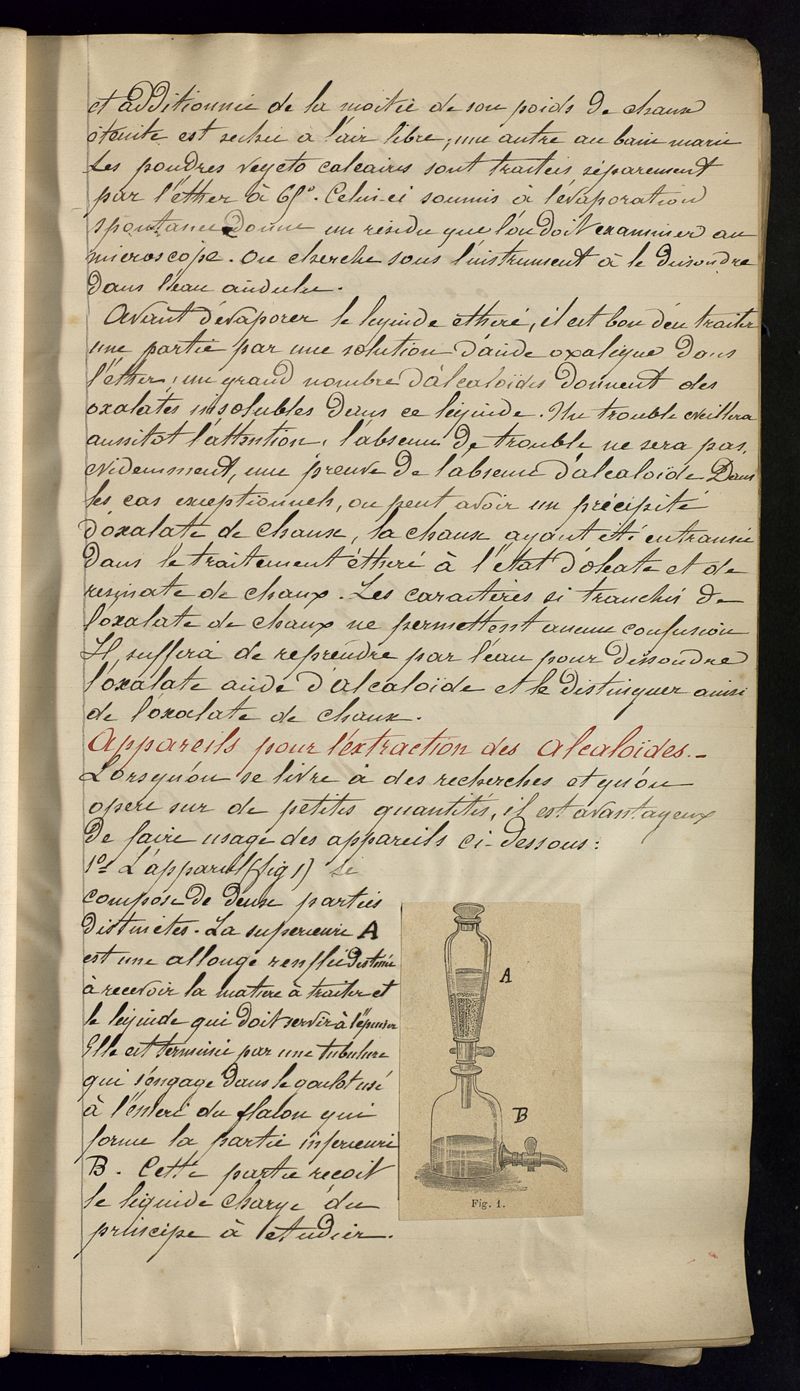 et additionnée de la moitié de son poids de chaux
éteinte est séchée à l'air libre, une autre au bain marie
Les poudres végéto calcaires sont traitées séparement
par l'éther à 65°. Celui-ci soumis à l'évaporation
spontanée donne un résidu que l'on doit examiner au
microscope. On cherche sous l'instrument à le dissoudre
dans l'eau acidulée.
Avant d'évaporer le liquide éthéré, il est bon d'en traiter
une partie par une solution d'acide oxalique dans
l'éther; un grand nombre d'alcaloïdes donnent des
oxalates insolubles dans ce liquide. Un trouble éveillera
aussitot l'attention, l'absence de trouble ne sera pas,
evidemment, une preuve de l'absence d'alcaloïde Dans
les cas exceptionnels, on peut avoir un précipité
d'oxalate de chaux, la chaux ayant été entrainée
dans le traitement éthéré à l'état d'oléate et de
resinate de chaux. Les caractères si tranchés de
l'oxalate de chaux ne permettent aucune confusion
Il suffira de reprendre par l'eau pour dissoudre
l'oxalate acide d'alcaloïde et le distinguer ainsi
de l'oxalate de chaux.
Appareils pour l'extraction des alcaloïdes.-
Lorsqu'on se livre à des recherches et qu'on
opere sur de petites quantités, il est avantageux
de faire usage des appareils ci-dessous:
1° L'appareil (fig 1) se
compose de deux parties
distinctes. La superieure A
est une allonge renflée destinée
à recevoir la matière à traiter et
le liquide qui doit servir à l'épuiser
Elle est terminée par une tubulure
qui s'engage dans le goulot usé
à l'émeri du flacon qui
forme la partie inferieure
B. Cette partie reçoit
le liquide chargé du
principe à étudier.
A
B
Fig. 1.